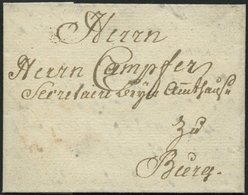 Herrn
Herrn Campfer
Secretair beÿm Ambthauß
zu
Burg.